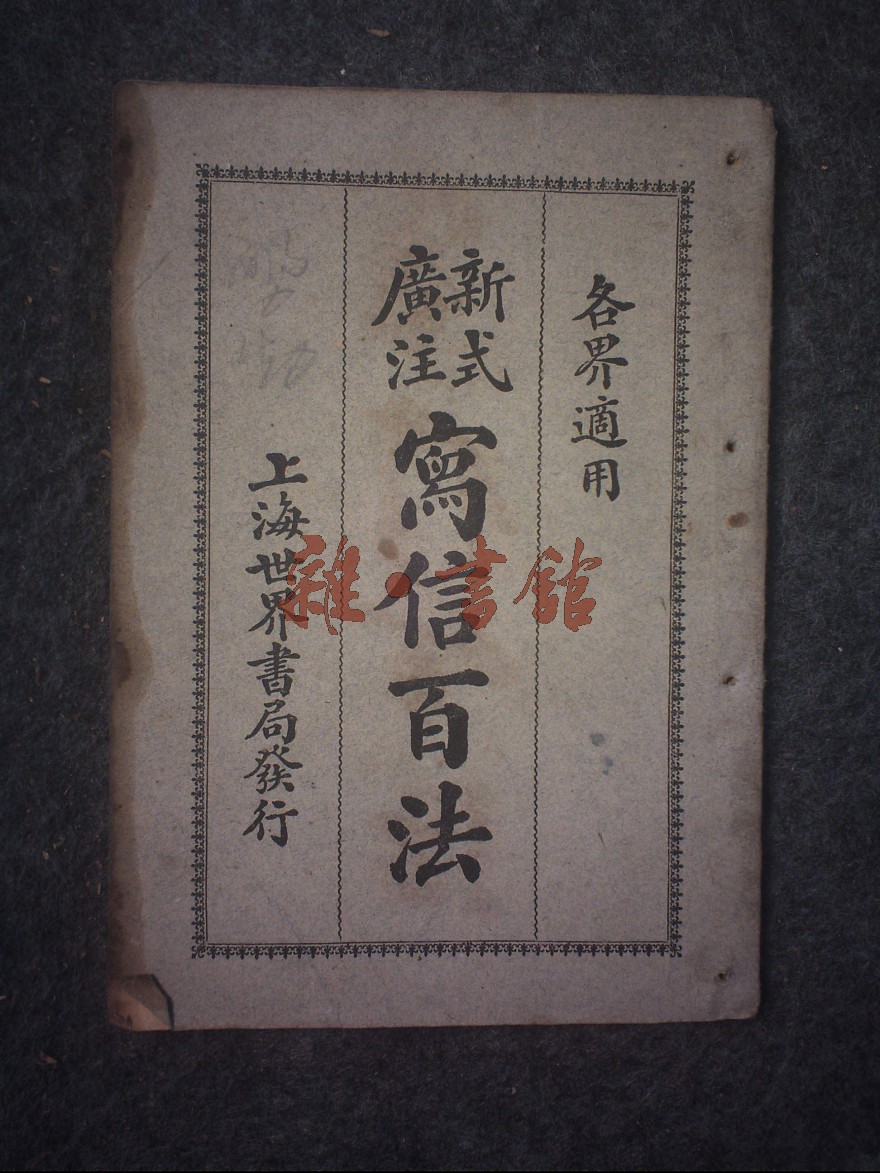 各界適用
新式
廣注
寫信百法
上海世界書局發行
雜·書館